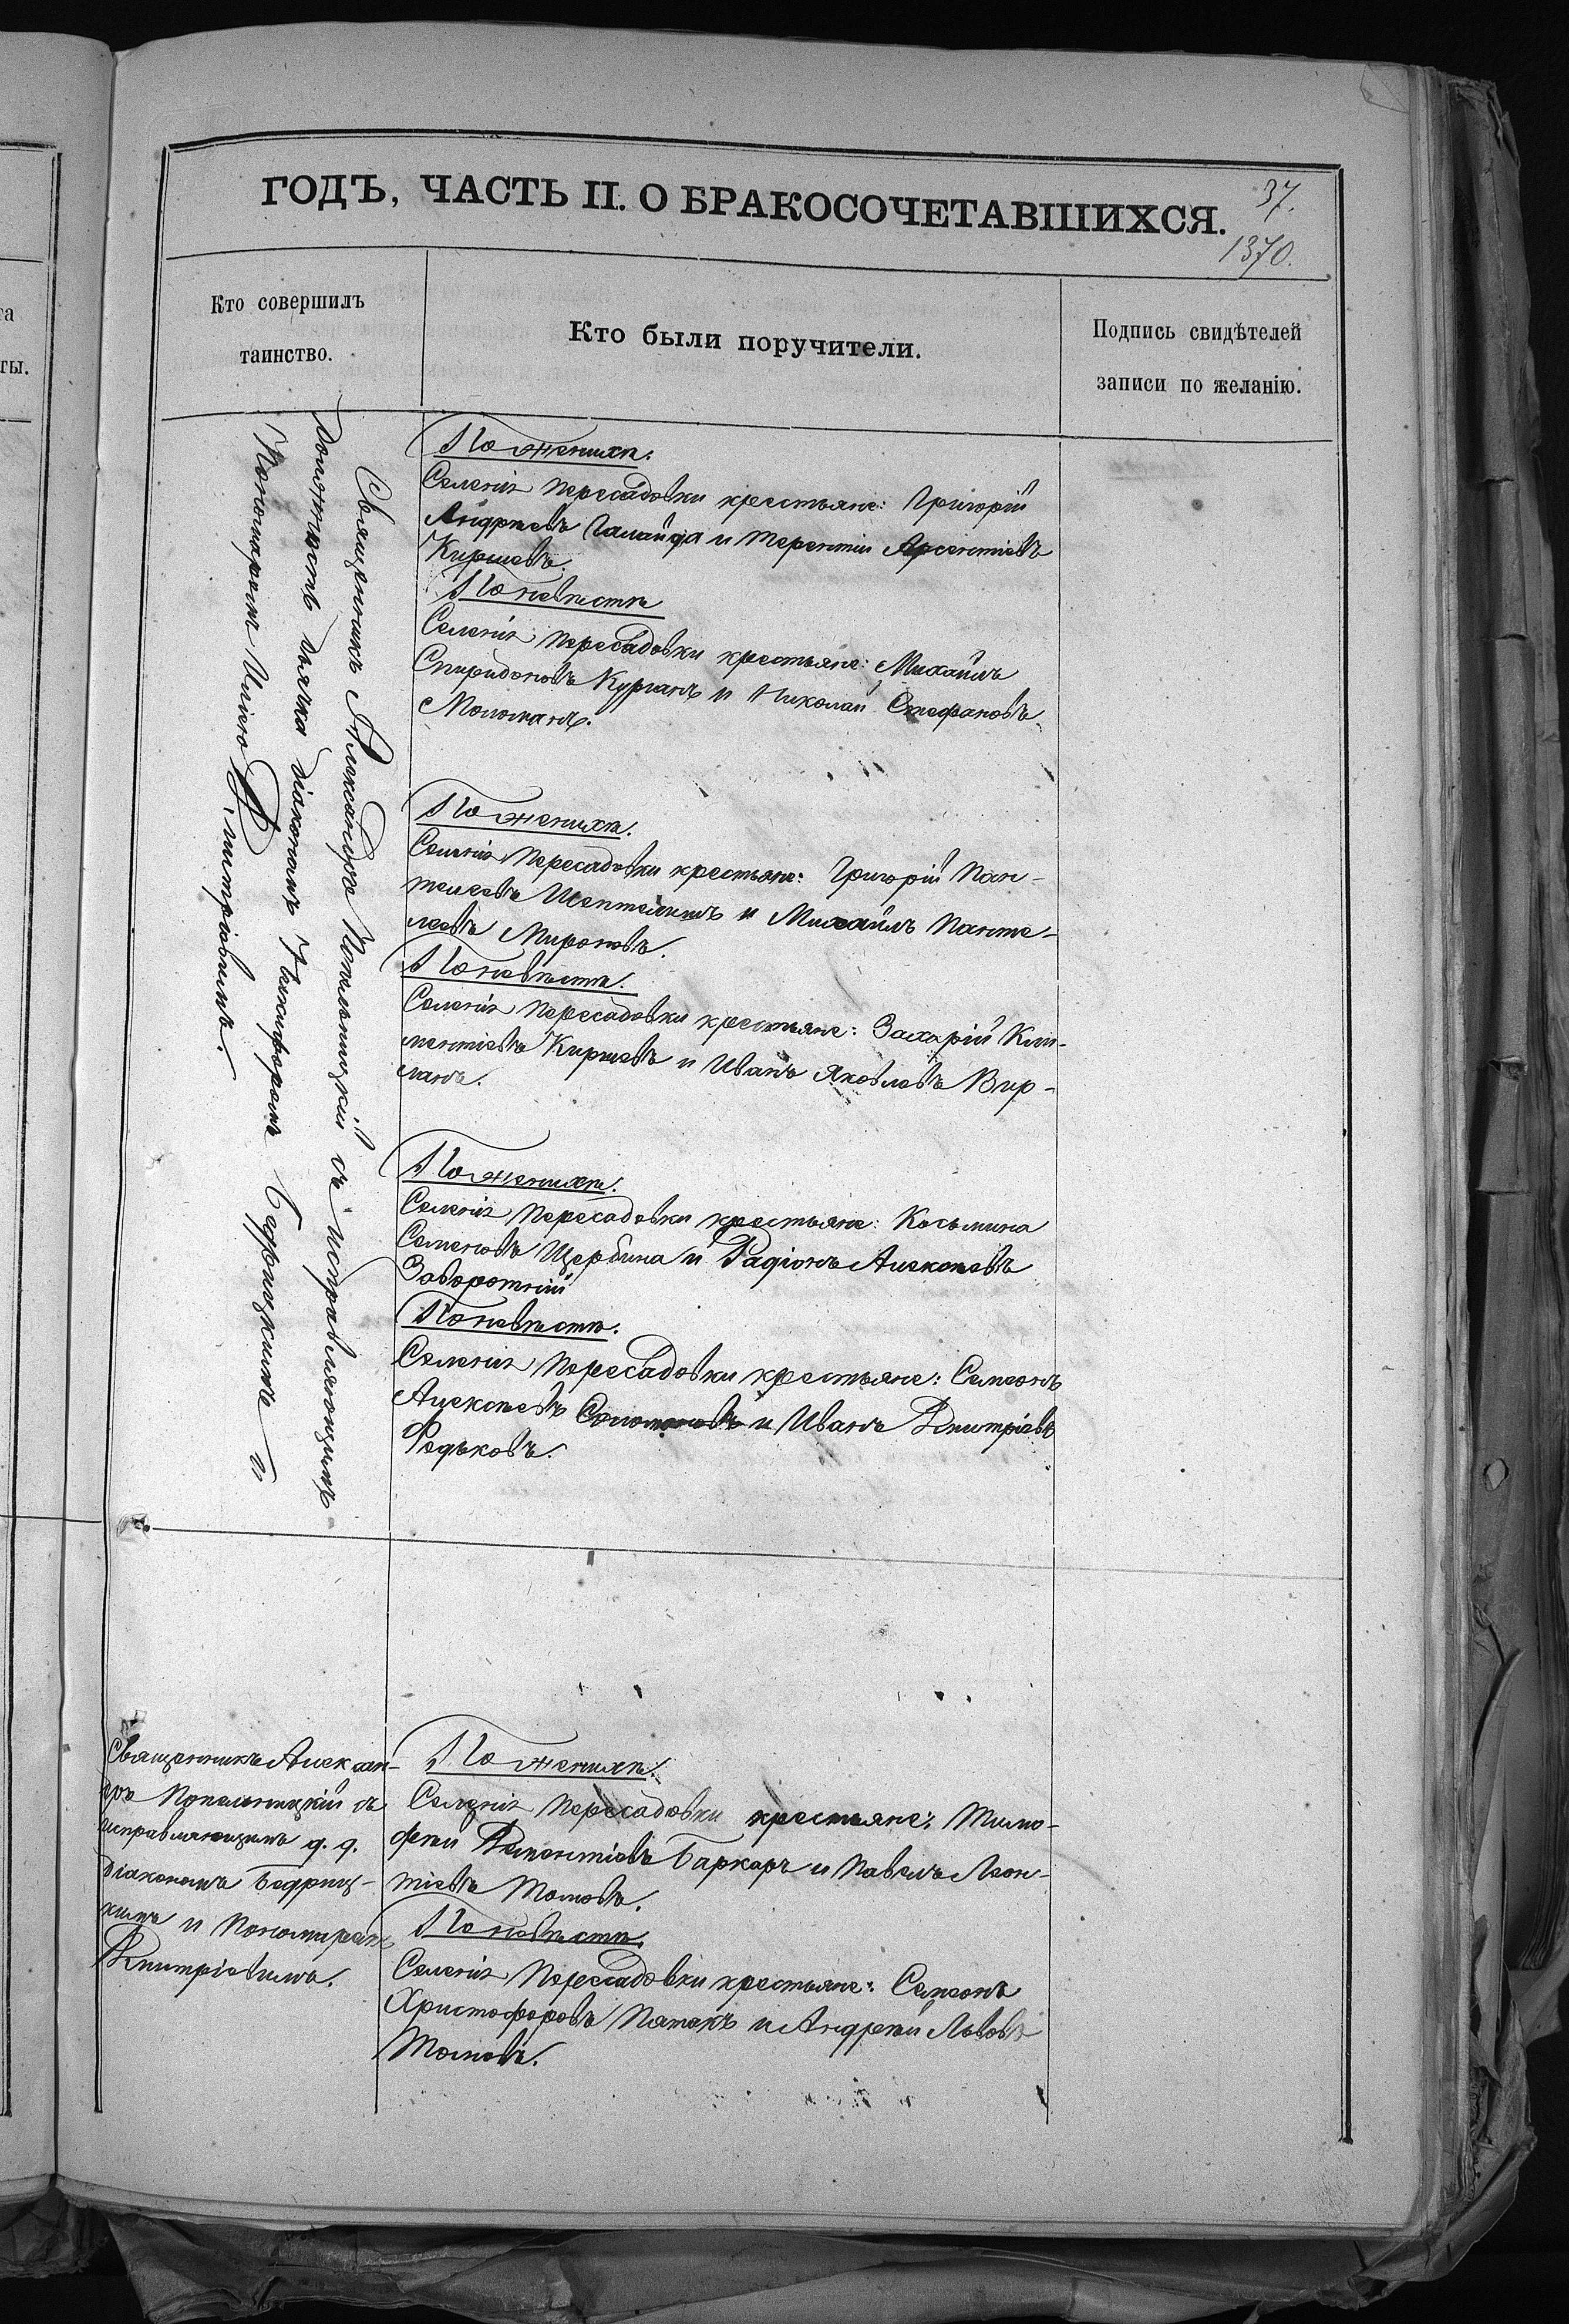 ГОДЪ, ЧАСТЬ II. О БРАКОСОЧЕТАВШИХСЯ.
37.
1370.
Кто совершилъ
таинство.
Кто были поручители.
Подпись свидѣтелей
записи по желанію.
Священникъ Александръ Попельницкій съ исправляющимъ
должность дьячка діакономъ Никифоромъ Бедрицкимъ и
Пономаремъ Иліею Димитріевымъ.
По женихѣ.
Селенія Пересадовки крестьяне: Григорій
Андреевъ Галайда и Терентій Арсентіевъ
Киршевъ.
По невѣстѣ
Селенія Пересадовки крестьяне: Михаилъ
Спиридоновъ Курганъ и Николай Стефановъ
Моломанъ.
По женихѣ.
Селенія Пересадовки крестьяне: Григорій Пан-
телеевъ и Михаилъ Панте-
леевъ Мироновъ.
По невѣстѣ.
Селенія Пересадовки крестьяне: Захарій Кли-
ментіевъ Киршевъ и Иванъ Яковлевъ Вир-
ланъ.
По женихѣ.
Селенія Пересадовки крестьяне: Косьмина
Семеновъ Щербина и Радіонъ Алексѣевъ
Заворотній
По невѣстѣ.
Селенія Пересадовки крестьяне: Симеонъ
Алексѣевъ и Иванъ Димитріевъ
Редьковъ.
Священникъ Алексан-
дръ Попельницкій съ
исправляющимъ д. д.
діакономъ Бедриц-
кимъ и Пономаремъ
Димитріевымъ.
По женихѣ.
Селенія Пересадовки крестьяне: Тимо-
фей Дементіевъ Баркарь и Павелъ Леон-
тіевъ Томовъ.
По невѣстѣ.
Селенія Пересадовки крестьяне: Симеонъ
Христофоровъ Патакъ и Андрей Львовъ
Томовъ.